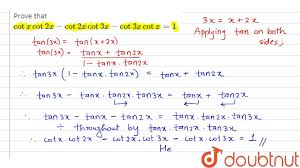 Prove that
cot x cot 2x − cot 2x cot 3x − cot 3x cot x = 1
3x = x + 2x
Applying tan on both sides;
tan(3x) = tan(x+2x)
tan(3x) = tanx + tan2x / 1 − tanx.tan2x
∴ tan3x (1 − tanx.tan2x) = tanx + tan2x
∴ tan3x − tanx.tan2x.tan3x = tanx + tan2x
∴ tan3x − tanx − tan2x = tanx.tan2x.tan3x
÷ throughout by tanx.tan2x.tan3x
∴ cotx.cot2x − cot2x.cot3x − cot3x.cotx = 1 //
He
doubtnut